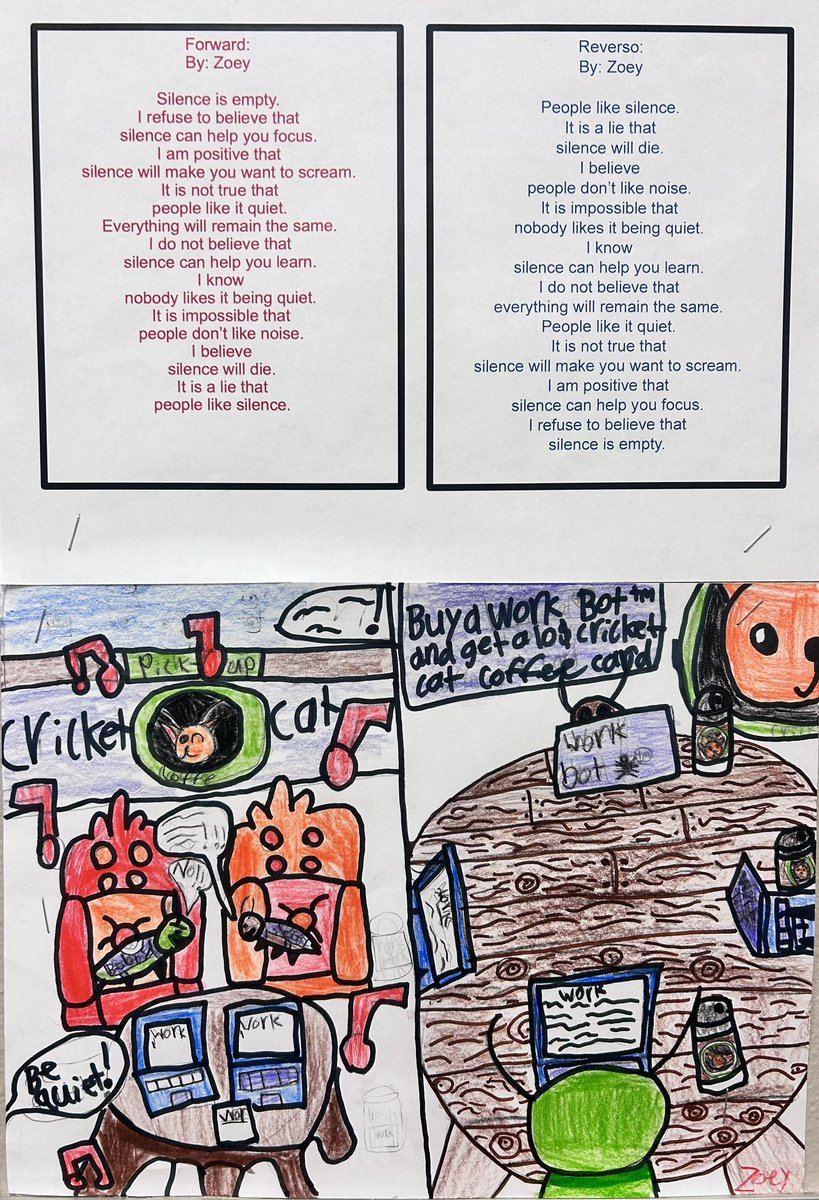 Forward:
By: Zoey
Silence is empty.
I refuse to believe that
silence can help you focus.
I am positive that
silence will make you want to scream.
It is not true that
people like it quiet.
Everything will remain the same.
I do not believe that
silence can help you learn.
I know
nobody likes it being quiet.
It is impossible that
people don’t like noise.
I believe
silence will die.
It is a lie that
people like silence.
Reverso:
By: Zoey
People like silence.
It is a lie that
silence will die.
I believe
people don’t like noise.
It is impossible that
nobody likes it being quiet.
I know
silence can help you learn.
I do not believe that
everything will remain the same.
People like it quiet.
It is not true that
silence will make you want to scream.
I am positive that
silence can help you focus.
I refuse to believe that
silence is empty.
Pick up
cricket cat
NO!
Be
quiet!
work
work
work
Buy a Work Bot™
and get a 10$ cricket
cat coffee card
work
bot
work
Zoey